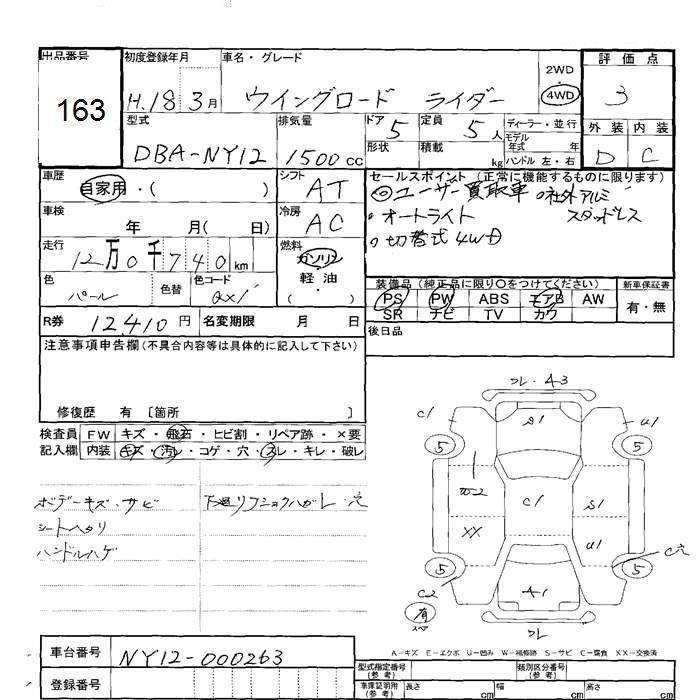 出品番号
163
初度登録年月
H.18 3月
車名・グレード
ウイングロード ライダー
2WD
4WD
評価点
3
外装 内装
D C
型式
DBA-NY12
排気量
1500cc
ドア 5
形状
定員 5人
積載 kg
ディーラー・並行
モデル年式 年
ハンドル 左・右
車歴
自家用・( )
シフト
AT
車検
年 月( 日)
冷房
AC
走行
12万0千740km
燃料
ガソリン
軽油
( )
色
パール
色替
色コード
QX1
R券 12,410円 名変期限 月 日
セールスポイント(正常に機能するものに限ります)
◎ユーザー買取車 ○社外アルミ
・オートライト スタッドレス
○切替式4WD
装備品(純正品に限り○をつけてください)
PS PW ABS エアB AW
SR ナビ TV カワ
新車保証書
有・無
後日品
注意事項申告欄(不具合内容等は具体的に記入して下さい)
修復歴 有 〔箇所 〕
検査員
記入欄
FW キズ・飛石・ヒビ割・リペア跡・×要
内装 キズ・汚レ・コゲ・穴・スレ・キレ・破レ
ボデーキズ・サビ
シートヘタリ
ハンドルハゲ
穴
フレ・A3
C1
S1
U1
5
5
C1
S1
XX
U1
5
5
C穴
C2
A1
有
フレ
A-キズ E-エクボ U-凹み W-補修跡 S-サビ C-腐食 XX-交換済
車台番号
NY12-000263
登録番号
型式指定番号
(参考)
類別区分番号
(参考)
車庫証明用
(参考)
長さ cm
幅 cm
高さ cm